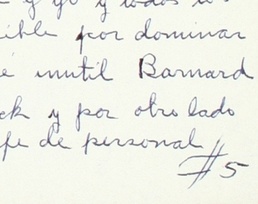 y todos
por dominar
inutil Barnard
y por otro lado
de personal
#5